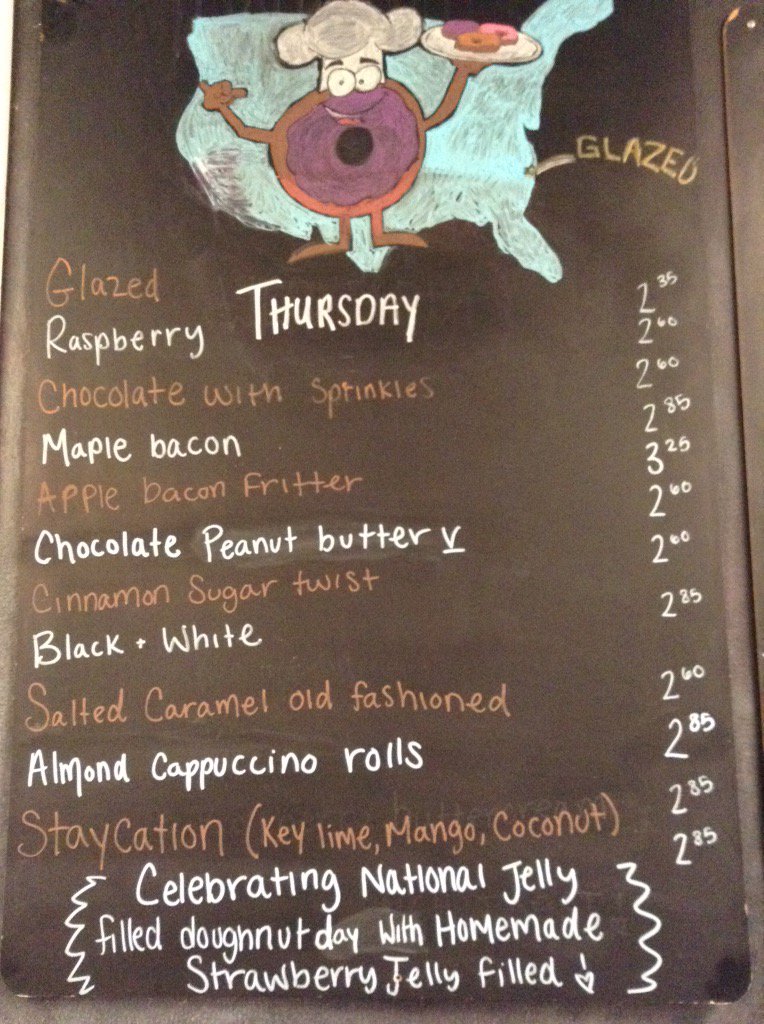 GLAZED
THURSDAY
Glazed 2 35
Raspberry 2 60
Chocolate with Sprinkles 2 60
Maple bacon 2 85
Apple bacon Fritter 3 25
Chocolate Peanut butter V 2 60
Cinnamon Sugar twist 2 60
Black + White 2 85
Salted Caramel old fashioned 2 60
Almond Cappuccino rolls 2 85
Staycation (Key lime, Mango, Coconut) 2 85
Celebrating National Jelly 2 85
filled doughnut day with Homemade
Strawberry Jelly Filled